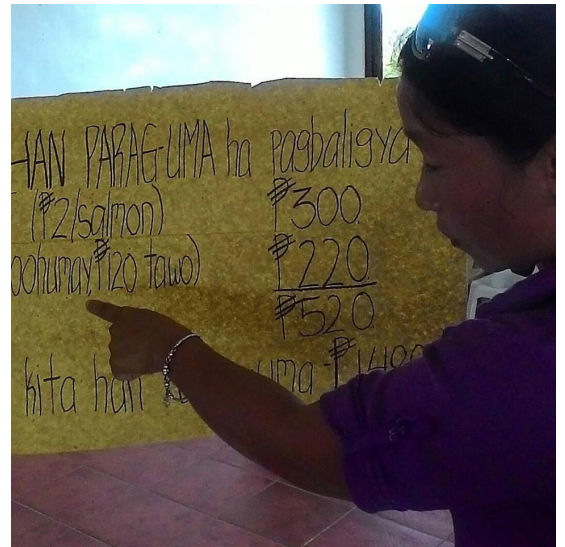 HAN PARAG-UMA ha pagbaligya
(₱2/salmon) ₱300
oohumay, ₱120 tawo) ₱220
₱520
kita han uma - ₱1480